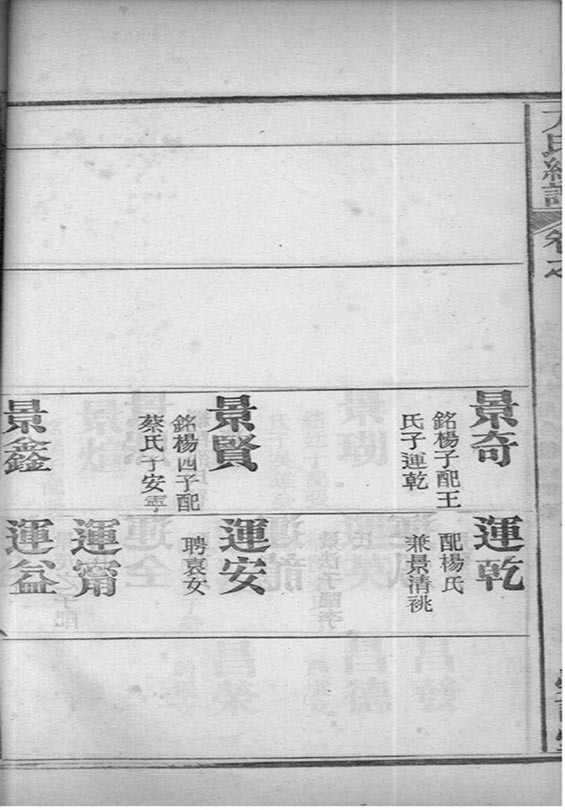 氏譜
卷之
景奇
銘楊子配王
氏子運乾
景賢
銘楊四子配
蔡氏子安寧
景鑫
運乾
配楊氏
兼景清祧
運安
聘袁女
運甯
運益